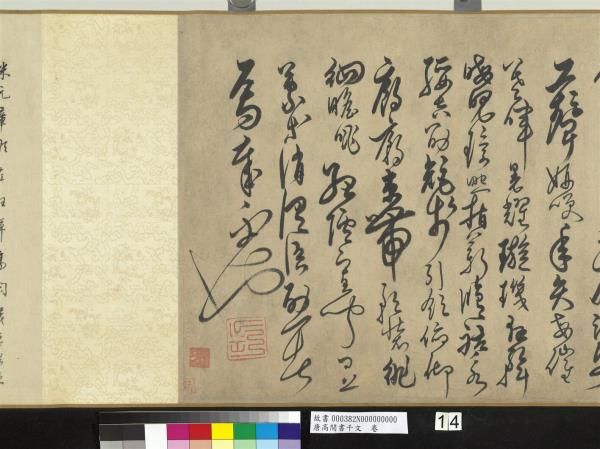 工顰妍笑年矢每催
羲暉朗耀璇璣懸斡
晦魄環照指薪脩祜永
綏吉劭矩步引領俯仰
廊廟束帶矜莊徘
徊瞻眺孤陋寡聞愚
蒙等誚謂語助者
焉哉乎也
米元章
故書 000382N000000000
唐高閑書千文 卷
14